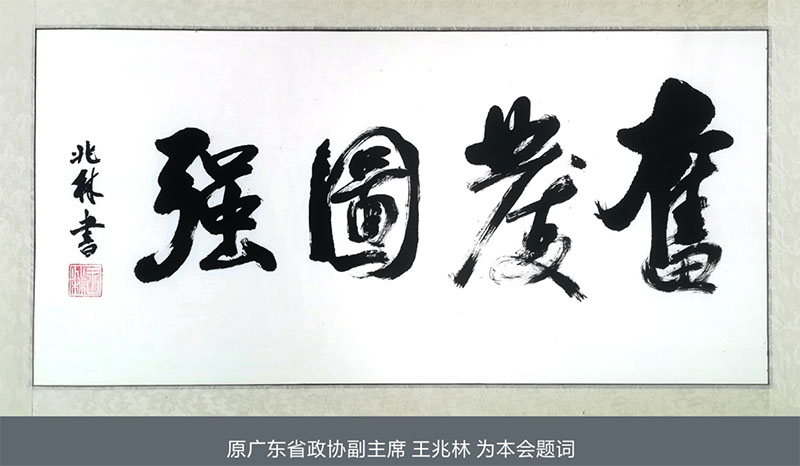 奮發圖强
兆林書
原广东省政协副主席 王兆林 为本会题词